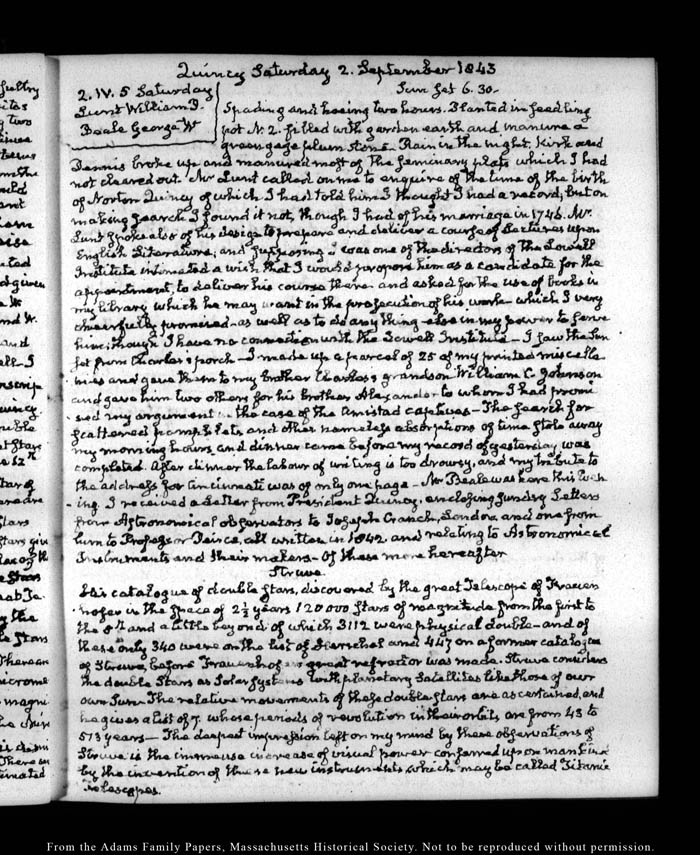 Quincy Saturday 2. September 1843
2. IV. 5 Saturday
Sun set 6.30-
Lunt William P.
Beale George W
Spading and hoeing two hours. Planted in seedling
pot N. 2. filled with garden earth and manure a
greengage plum stone. Rain in the night. Kirk and
Dennis broke up and manured most of the Seminary plats which I had
not cleared out. Mr Lunt called on me to enquire of the time of the birth
of Norton Quincy of which I had told him I thought I had a record; but on
making search I found it not, though I had of his marriage in 1746. Mr
Lunt spoke also of his design to prepare and deliver a course of Lectures upon
English Literature; and supposing I was one of the directors of the Lowell
Institute intimated a wish that I would propose him as a candidate for the
appointment, to deliver his course there and asked for the use of books in
my library which he may want in the prosecution of his work which I very
cheerfully promised as well as to do any thing else in my power to serve
him; though I have no connection with the Lowell Institute - I saw the Sun
set from Charles's porch - I made up a parcel of 25 of my printed miscella
nies and gave them to my brother Charles's grandson William C. Johnson
and gave him two others for his brother Alexander to whom I had promi
sed my argument in the case of the Amistad captives - The search for
scattered pamphlets and other nameless absorptions of time stole away
my morning hours and dinner came before my record of yesterday was
completed. After dinner the labour of writing is too drowsy, and my tribute to
the address for Cincinnati was of only one page - Mr Beale was here this even
ing. I received a Letter from President Quincy, enclosing sundry Letters
from Astronomical observators to Joseph Cranch, London and one from
him to Professor Peirce, all written in 1842 and relating to Astronomical
Instruments and their makers - Of these more hereafter
Struve.
His catalogue of double stars, discovered by the great Telescope of Frauen
hofer in the space of 2½ years 120000 stars of magnitude from the first to
the 8th and a little beyond of which 3112 were physical double - and of
these only 340 were on the list of Herschel and 447 on a former catalogue
of Struve, before Frauenhofer's great refractor was made. Struve considers
the double Stars as Solar systems with planetary Satellites like those of our
own Sun. The relative movements of these double stars are ascertained, and
he gives a list of 7. whose periods of revolution in their orbits are from 43 to
573 years - The deepest impression left on my mind by these observations of
Struve is the immense increase of visual power conferred upon mankind
by the invention of these new instruments which may be called Titanic
Telescopes.
From the Adams Family Papers, Massachusetts Historical Society. Not to be reproduced without permission.